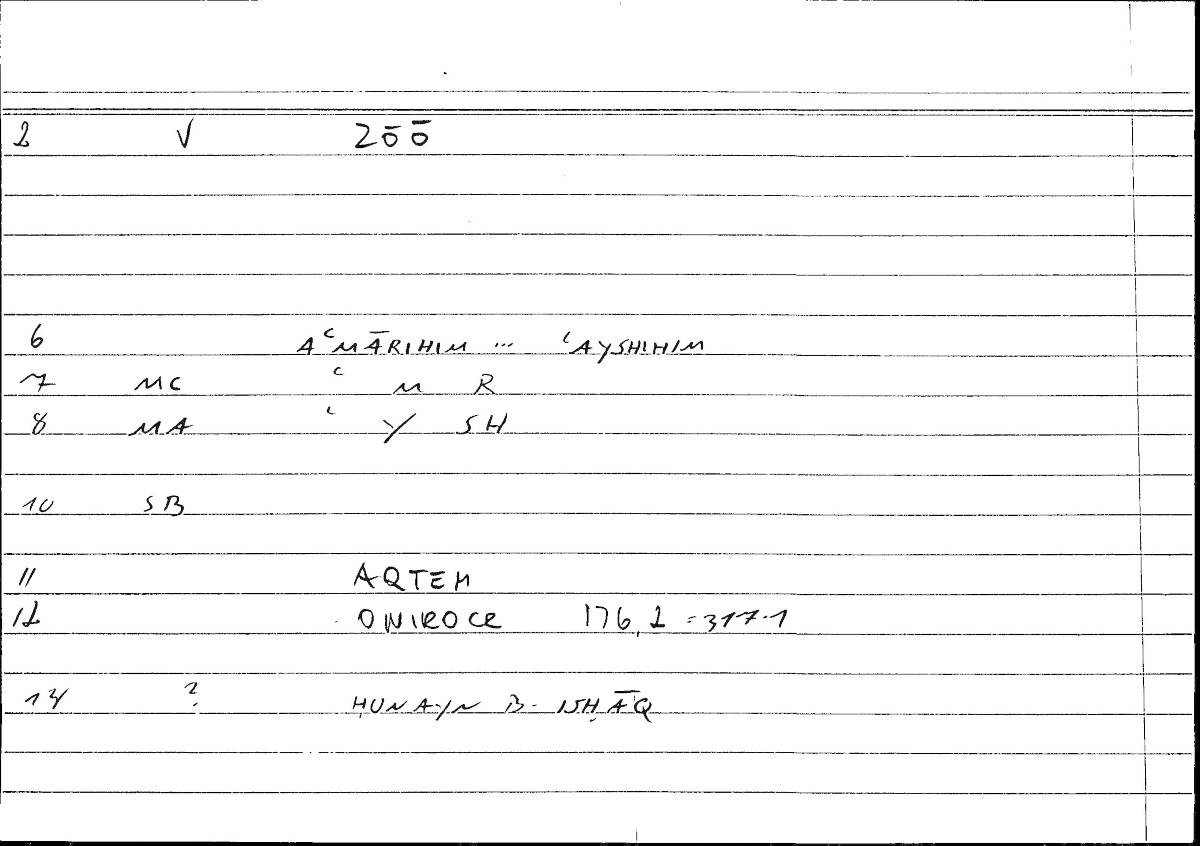 2 V ζōō
6 AʿMĀRIHIM ... ʿAYSHIHIM
7 MC ʿ M R
8 MA ʿ Y SH
10 SB
11 AQTEM
12 ONIROCR 176,2 = 317.1
14 ? ḤUNAYN B. ISḤĀQ